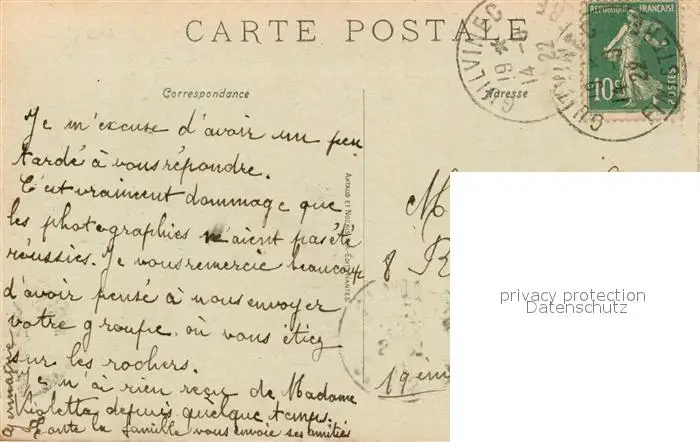 CARTE POSTALE
Correspondance
Adresse
RÉPUBLIQUE FRANÇAISE
10c
POSTES
GUILVINEC
14
22
FINISTÈRE
Je m'excuse d'avoir un peu
tardé à vous répondre.
C'est vraiment dommage que
les photographies n'aient pas été
réussies. Je vous remercie beaucoup
d'avoir pensé à nous envoyer
votre groupe où vous étiez
sur les rochers.
Je n'ai rien reçu de Madame
Violette depuis quelque temps.
Toute la famille vous envoie ses amitiés
Germaine
ARTAUD ET NOZAIS ÉDIT NANTES
M
8 R
19èm
privacy protection
Datenschutz